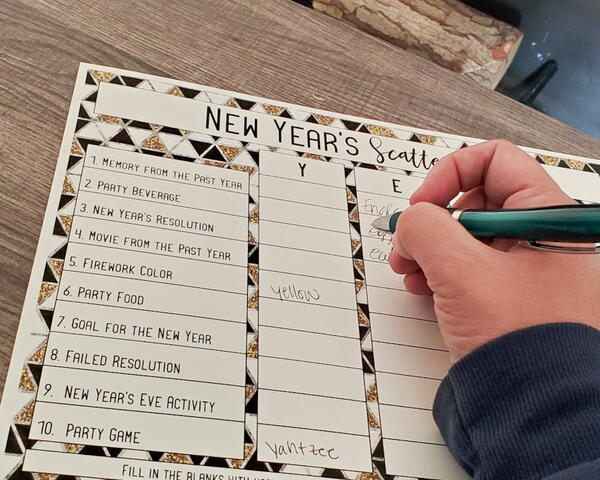 NEW YEAR'S Scatte
Y E
1. MEMORY FROM THE PAST YEAR
2. PARTY BEVERAGE
3. NEW YEAR'S RESOLUTION
4. MOVIE FROM THE PAST YEAR
5. FIREWORK COLOR
yellow
6. PARTY FOOD
7. GOAL FOR THE NEW YEAR
8. FAILED RESOLUTION
9. NEW YEAR'S EVE ACTIVITY
10. PARTY GAME
Yahtzee
FILL IN THE BLANKS WITH